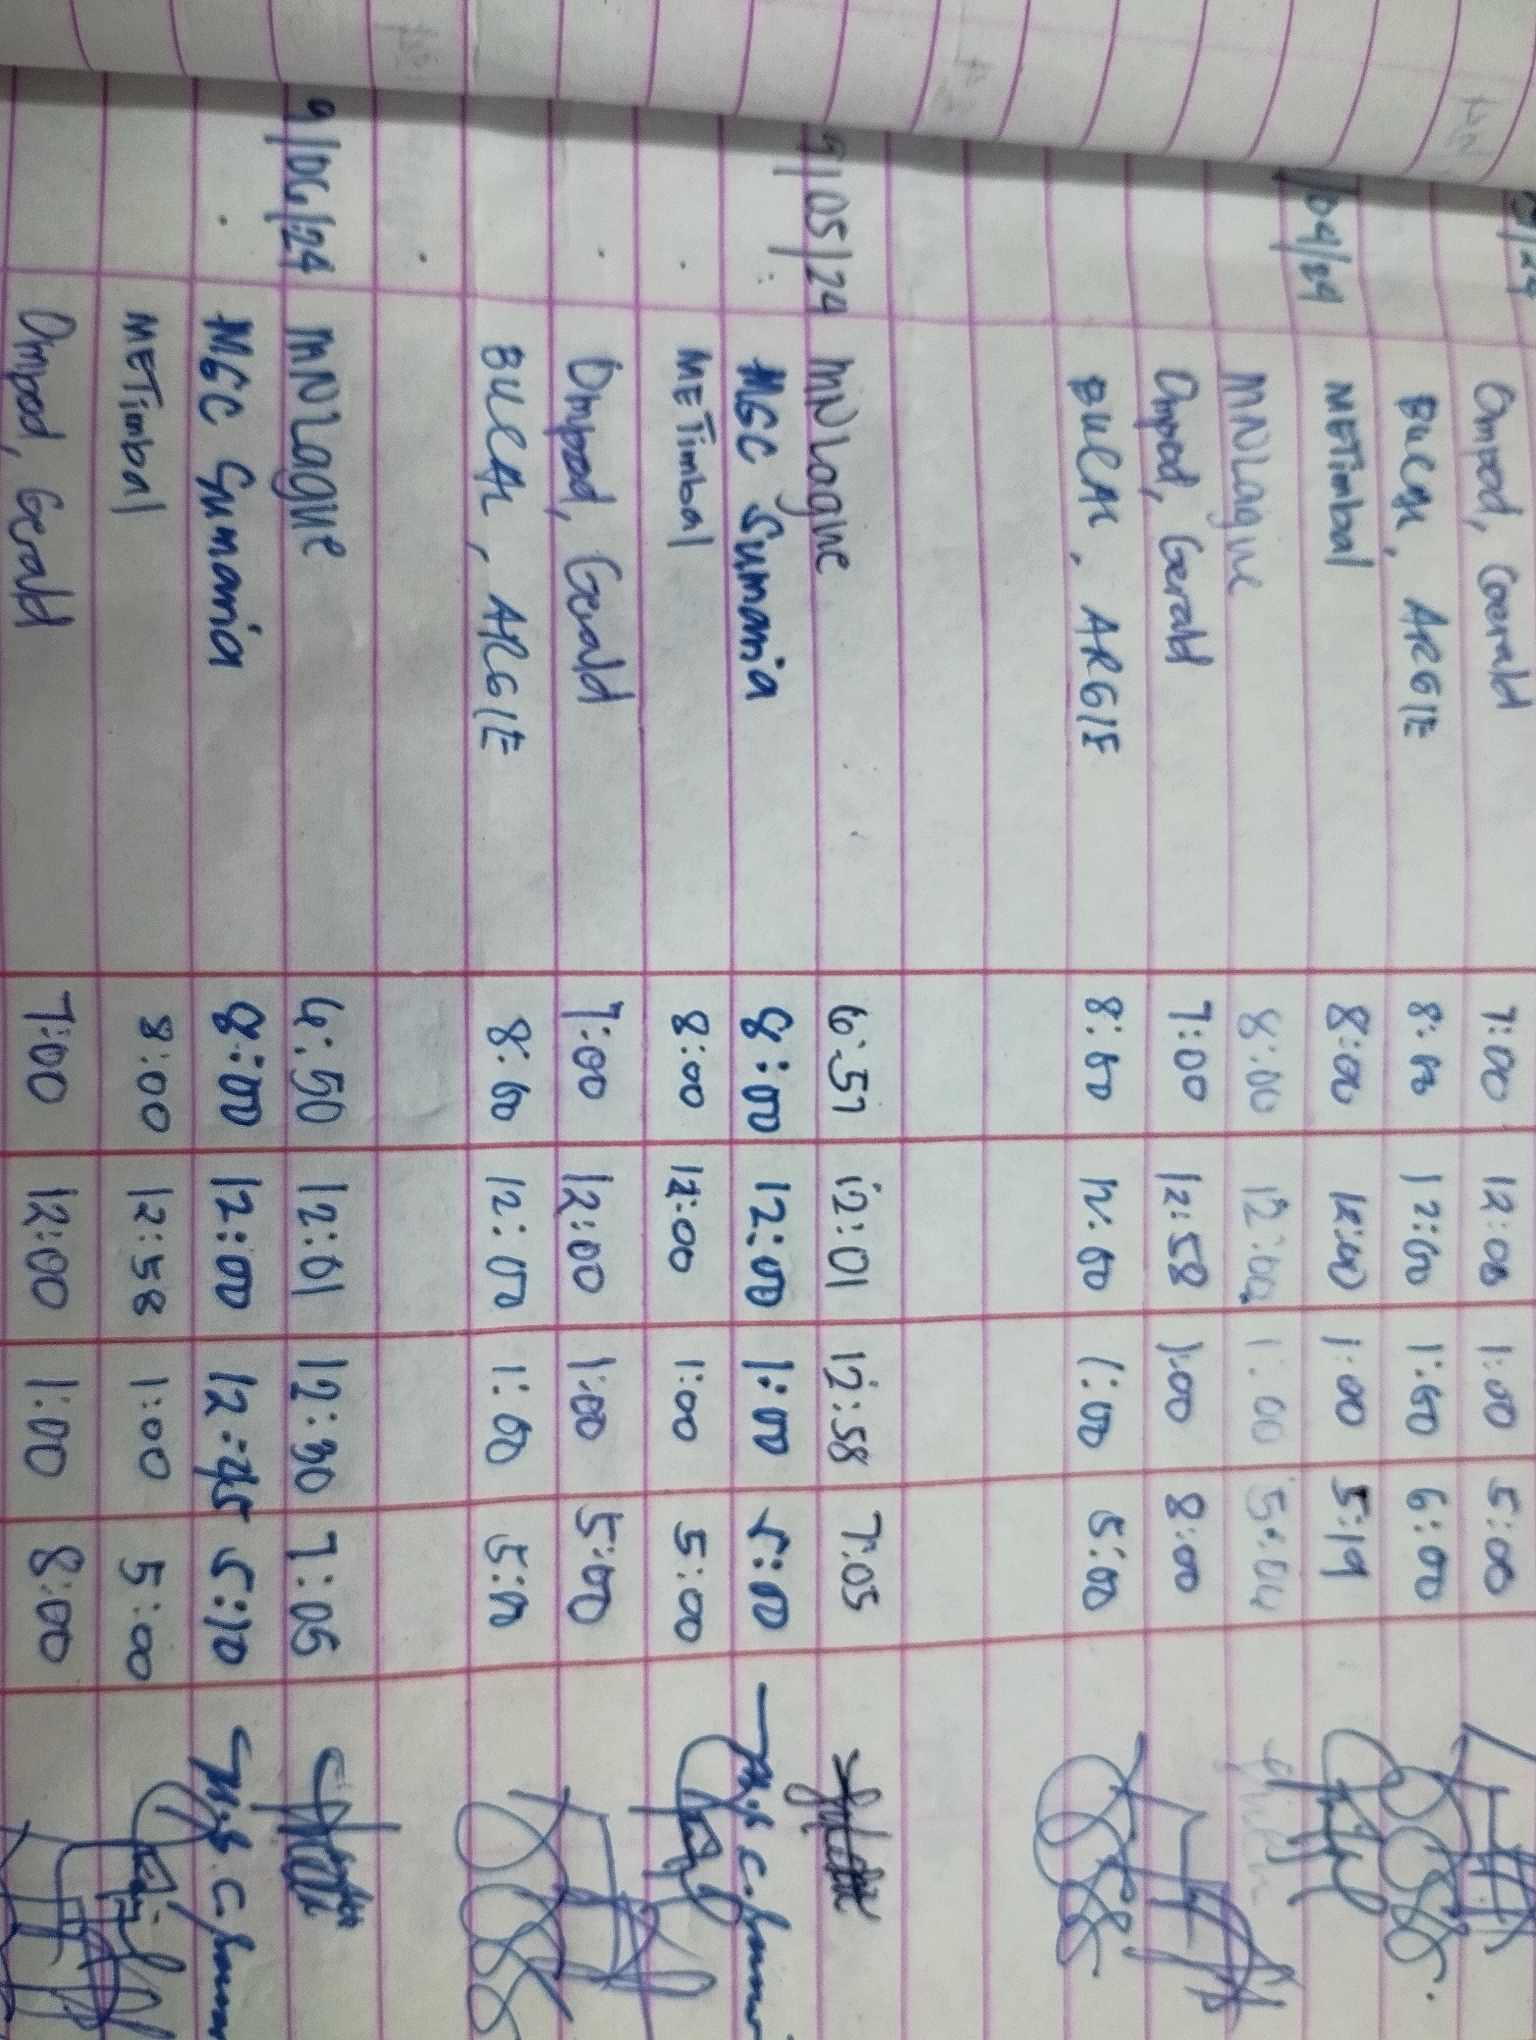 Ompod, Gerald 7:00 12:00 1:00 5:00
BUCAL, ARGIE 8:00 12:00 1:00 6:00
/04/24 METimbal 8:00 12:00 1:00 5:19
MNLague 8:00 12:00 1:00 5:04
Ompod, Gerald 7:00 12:58 1:00 8:00
BUCAL, ARGIE 8:00 12:00 1:00 5:00
9/05/24 MNLague 6:57 12:01 12:58 7:05
MGC Sumania 8:00 12:00 1:00 5:00 M.G.C. Suman
METimbal 8:00 12:00 1:00 5:00
Ompod, Gerald 7:00 12:00 1:00 5:00
BUCAL, ARGIE 8:00 12:00 1:00 5:00
9/06/24 MNLague 6:50 12:01 12:30 7:05
MGC Sumania 8:00 12:00 12:45 5:10 M.G.C. Suman
METimbal 8:00 12:58 1:00 5:00
Ompod, Gerald 7:00 12:00 1:00 8:00